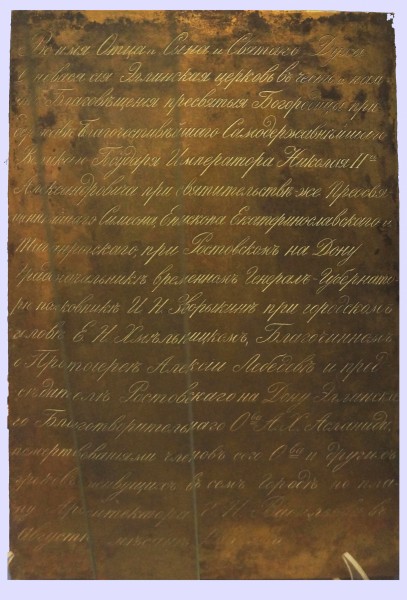 Во имя Отца и Сына и Святаго Духа
Эллинская церковь въ честь и
Благовѣщения пресвятыя Богородицы при
Благочестивѣйшаго Самодержавнѣйшаго
Великаго Государя Императора Николая IIго
Александровича при святительствѣ же Преосвя-
щеннѣйшаго Симеона, Епископа Екатеринославскаго и
Таганрогскаго, при Ростовскомъ на Дону
временномъ Генералъ-Губернато-
рѣ полковникѣ И. И. Зворыкинѣ при городскомъ
головѣ Е. Н. Хмѣльницкомъ, Благочинномъ
о Протоиереѣ Алексѣи Лебедевѣ и пред-
сѣдателѣ Ростовскаго на Дону Эллинска-
го Благотворительнаго Оба А. Х. Асланиди,
пожертвованіями членовъ сего Оба и другихъ
живущихъ въ семъ городѣ по пла-
ну Архитектора Н. въ
Августѣ мѣсяцѣ